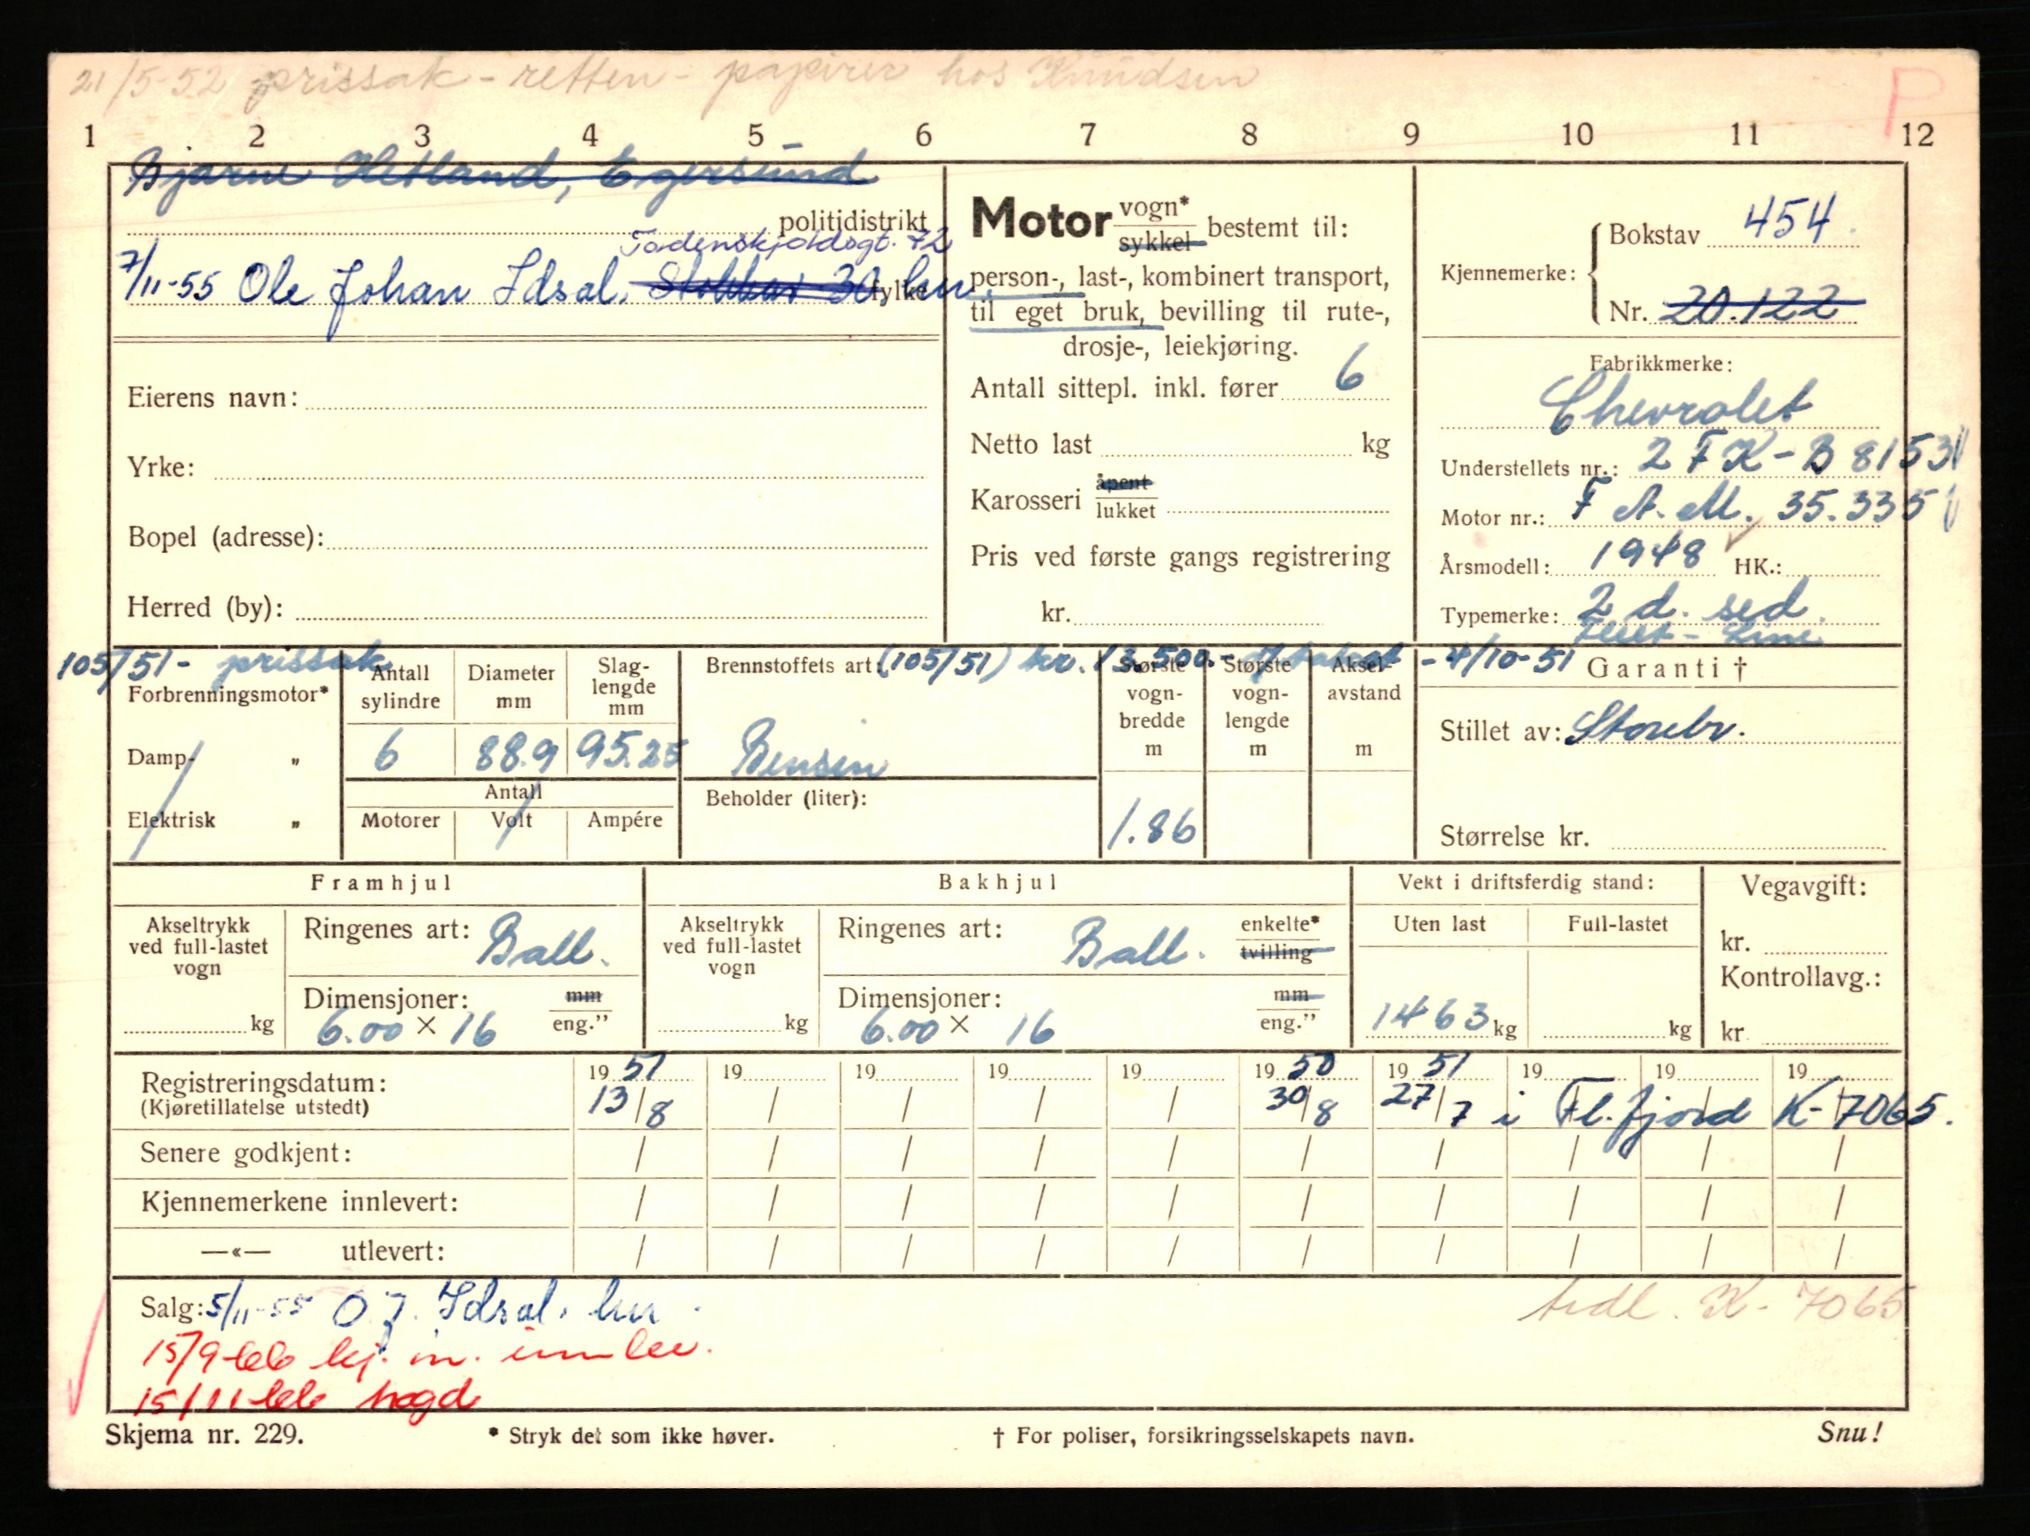 21/5-52 prissak - retten - papirer hos Knudsen
P
1 2 3 4 5 6 7 8 9 10 11 12
Bjarne Hetland, Egersund
politidistrikt
Tordenskjoldsgt. 72
7/11-55 Ole Johan Idsal, Stokkav 30 her.
fylke
Eierens navn:
Yrke:
Bopel (adresse):
Herred (by):
Motor vogn* sykkel bestemt til:
person-, last-, kombinert transport,
til eget bruk, bevilling til rute-,
drosje-, leiekjøring.
Antall sittepl. inkl. fører 6
Netto last kg
Karosseri åpent lukket
Pris ved første gangs registrering
kr.
Kjennemerke: Bokstav 454
Nr. 20.122
Fabrikkmerke:
Chevrolet
Understellets nr.: 2 FK-B 8153
Motor nr.: F A.M. 35.335
Årsmodell: 1948 HK.:
Typemerke: 2 d. sed.
Fleet-Line
105/51- prissak (105/51) kr. 13.500.- - 4/10-51
Forbrenningsmotor*
Damp- „
Elektrisk „
Antall sylindre
Diameter mm
Slag-lengde mm
6 88.9 95.25
Antall
Motorer Volt Ampére
Brennstoffets art:
Bensin
Beholder (liter):
Største vogn-bredde m
1.86
Største vogn-lengde m
Aksel-avstand m
Garanti †
Stillet av: Storebr.
Størrelse kr.
Framhjul
Akseltrykk ved full-lastet vogn
kg
Ringenes art: Ball.
Dimensjoner: mm eng."
6.00 × 16
Bakhjul
Akseltrykk ved full-lastet vogn
kg
Ringenes art: Ball. enkelte* tvilling
Dimensjoner: mm eng."
6.00 × 16
Vekt i driftsferdig stand:
Uten last Full-lastet
1463 kg kg
Vegavgift:
kr.
Kontrollavg.:
kr
Registreringsdatum: 19 51 19 19 19 19 19 50 19 51 19 19 19
(Kjøretillatelse utstedt) 13/8 / / / / 30/8 27/7 i Fl.fjord K-7065.
Senere godkjent: / / / / / / / / / /
Kjennemerkene innlevert: / / / / / / / / / /
—«— utlevert: / / / / / / / / / /
Salg: 5/11-55 O.J. Idsal, her.
tidl. K-7065
15/9-66 kj. m. innlev.
15/11-66 hogd
Skjema nr. 229.
* Stryk det som ikke høver.
† For poliser, forsikringsselskapets navn.
Snu!